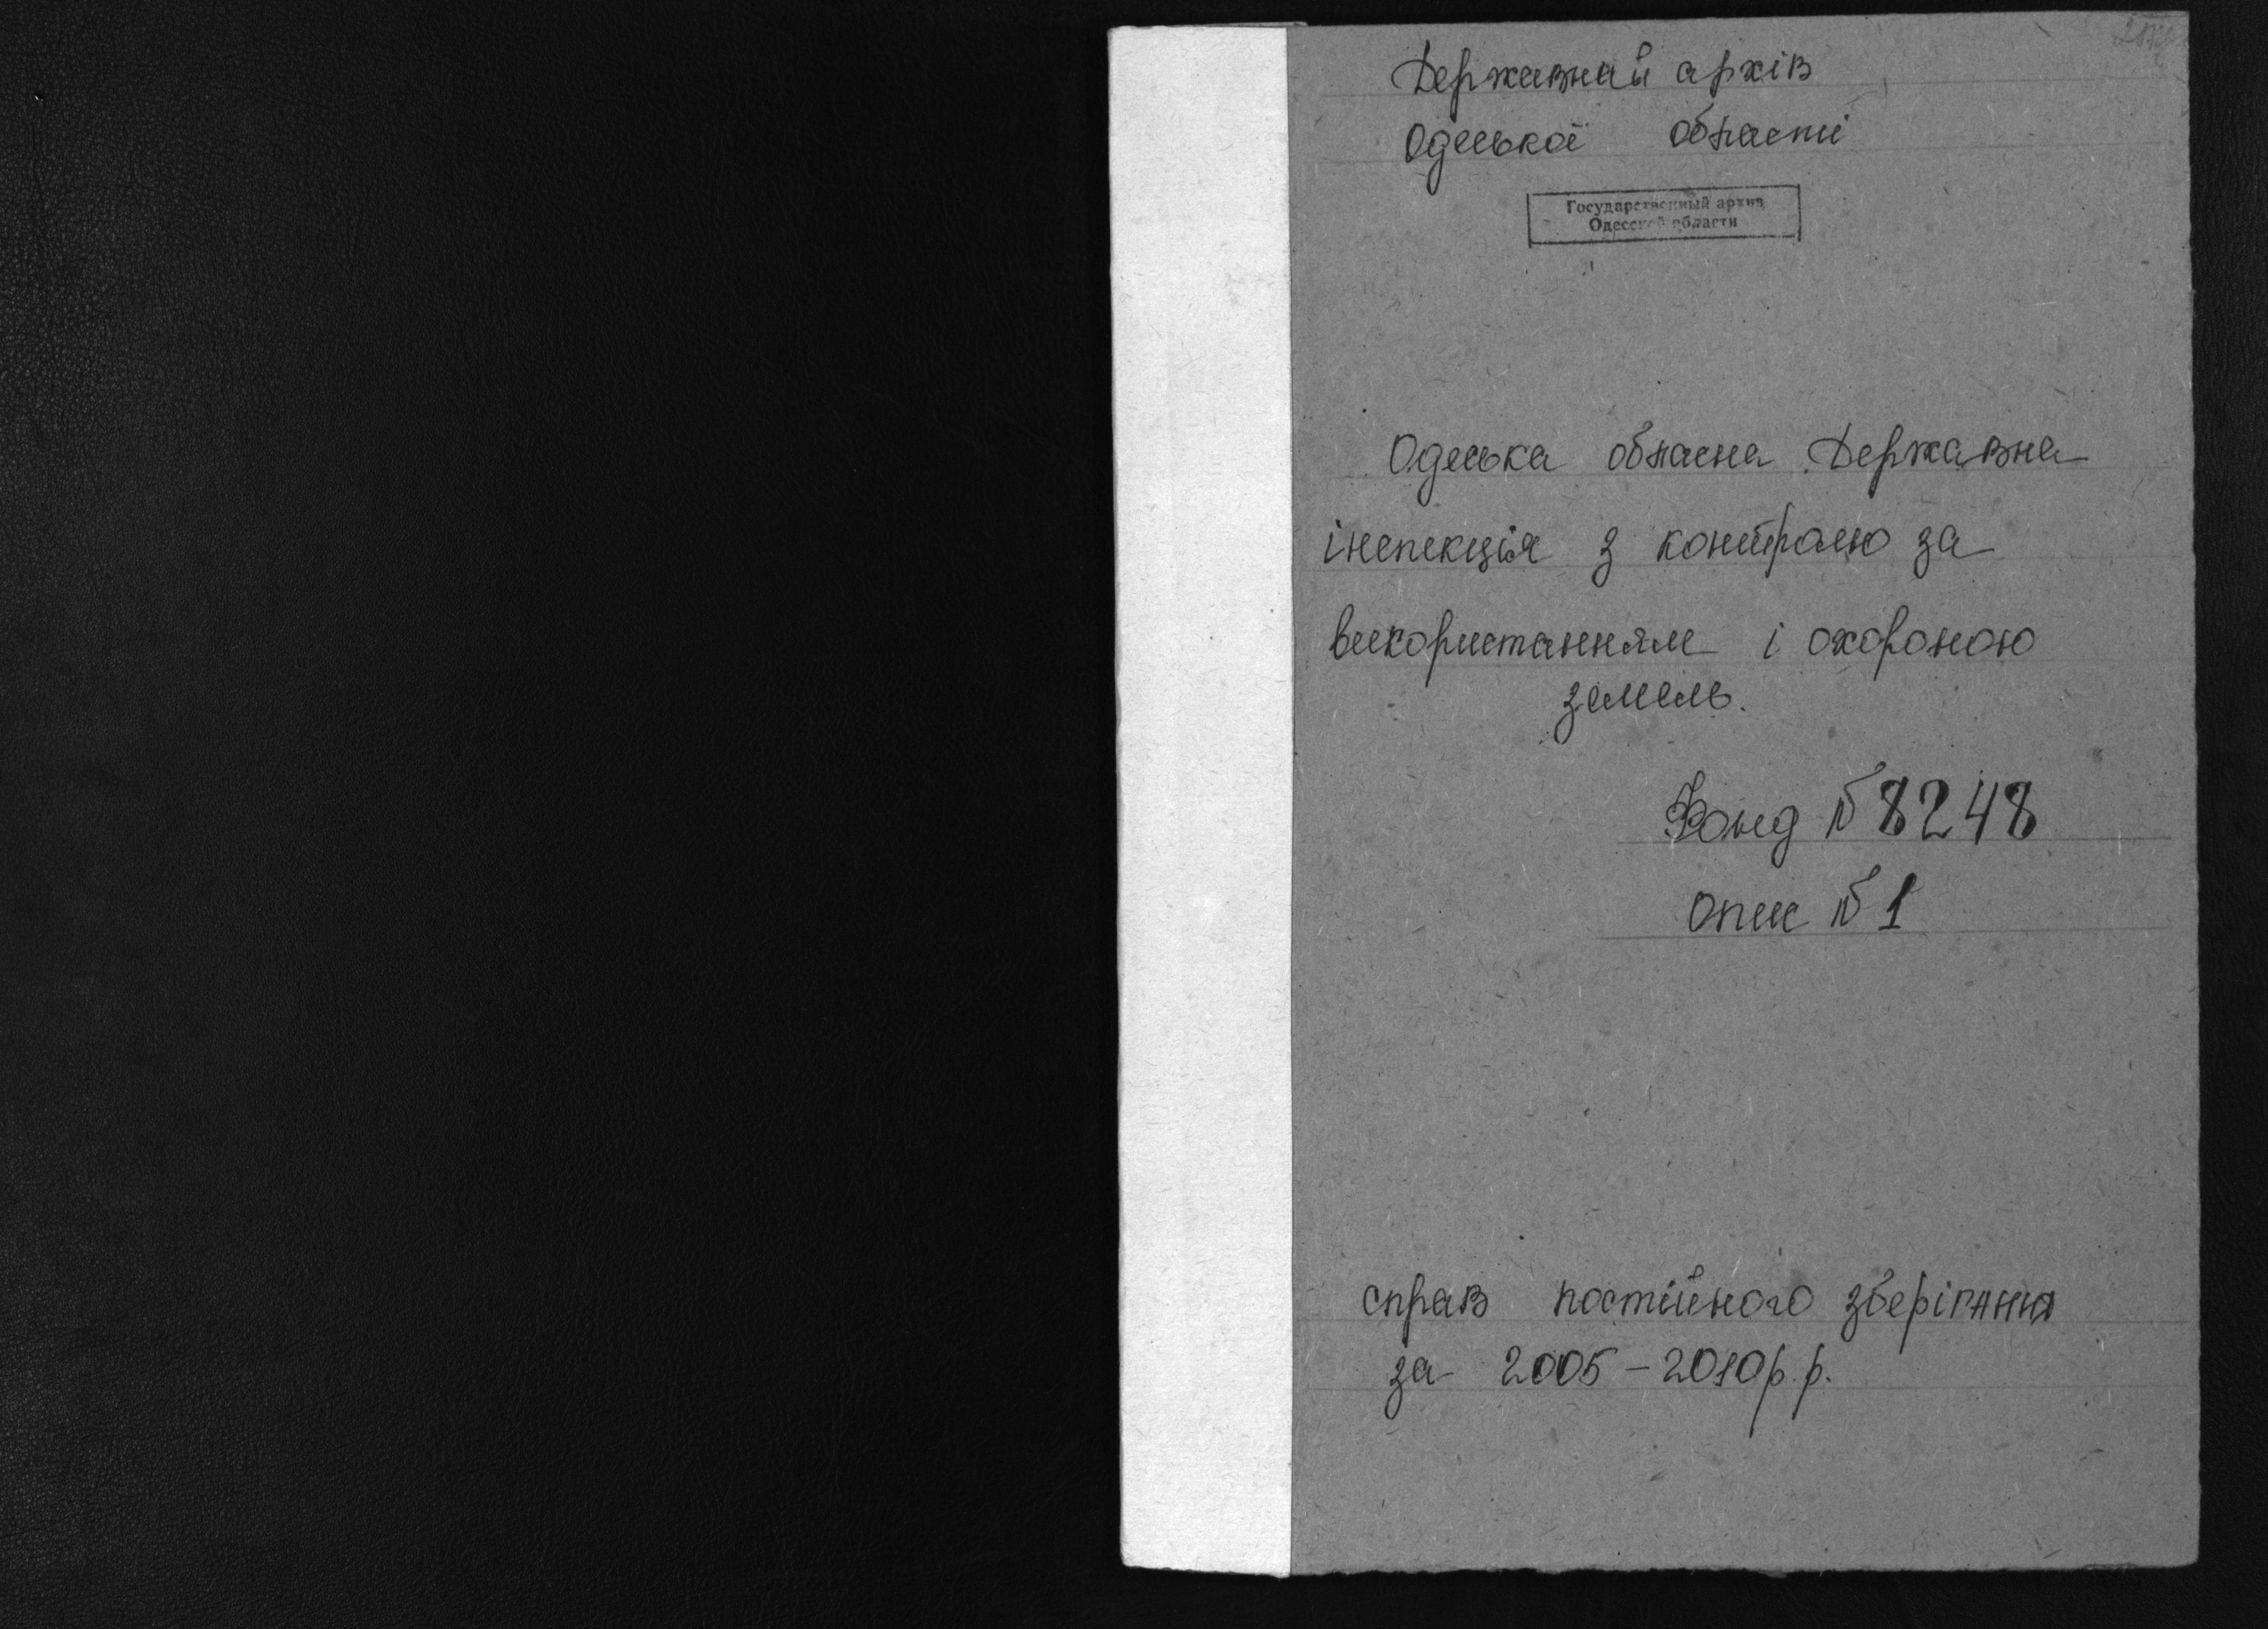 Державний архів
Одеської області
Государственный архив
Одесской области
Одеська обласна Державна
інспекція з контролю за
використанням і охороною
земель.
Фонд № 8248
опис № 1
справ постійного зберігання
за 2005 – 2010 р.р.